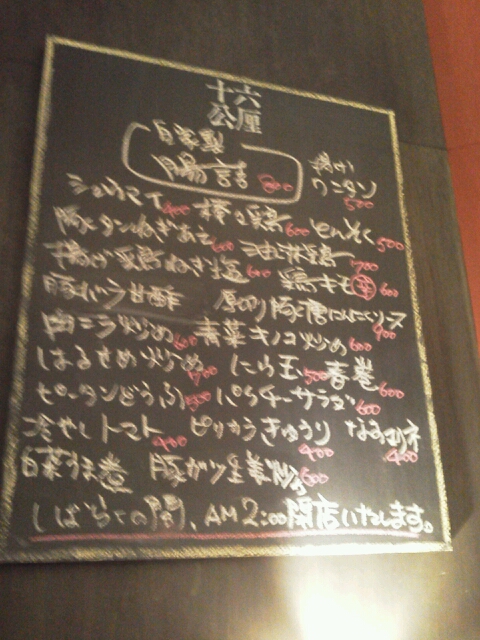 十六
公厘
自家製
腸詰 800
揚げ
ワニタン
500
400 棒々鶏 600 とんそく 500
豚タンねぎあえ 600 油淋鶏 700
揚げ鶏ねぎ塩 600 鶏キモ 辛 600
豚バラ甘酢 厚切り豚 にんにくソース
肉ニラ炒め 600 青菜キノコ炒め 600 900
はるさめ炒め 700 にら玉 500 春巻 600
ピータンどうふ 500 パクチーサラダ 600
冷やしトマト 400 ピリカラきゅうり 400 400
白菜 巻 豚ガツ生姜炒め 600
しばらくの間、AM2:00閉店いたします。